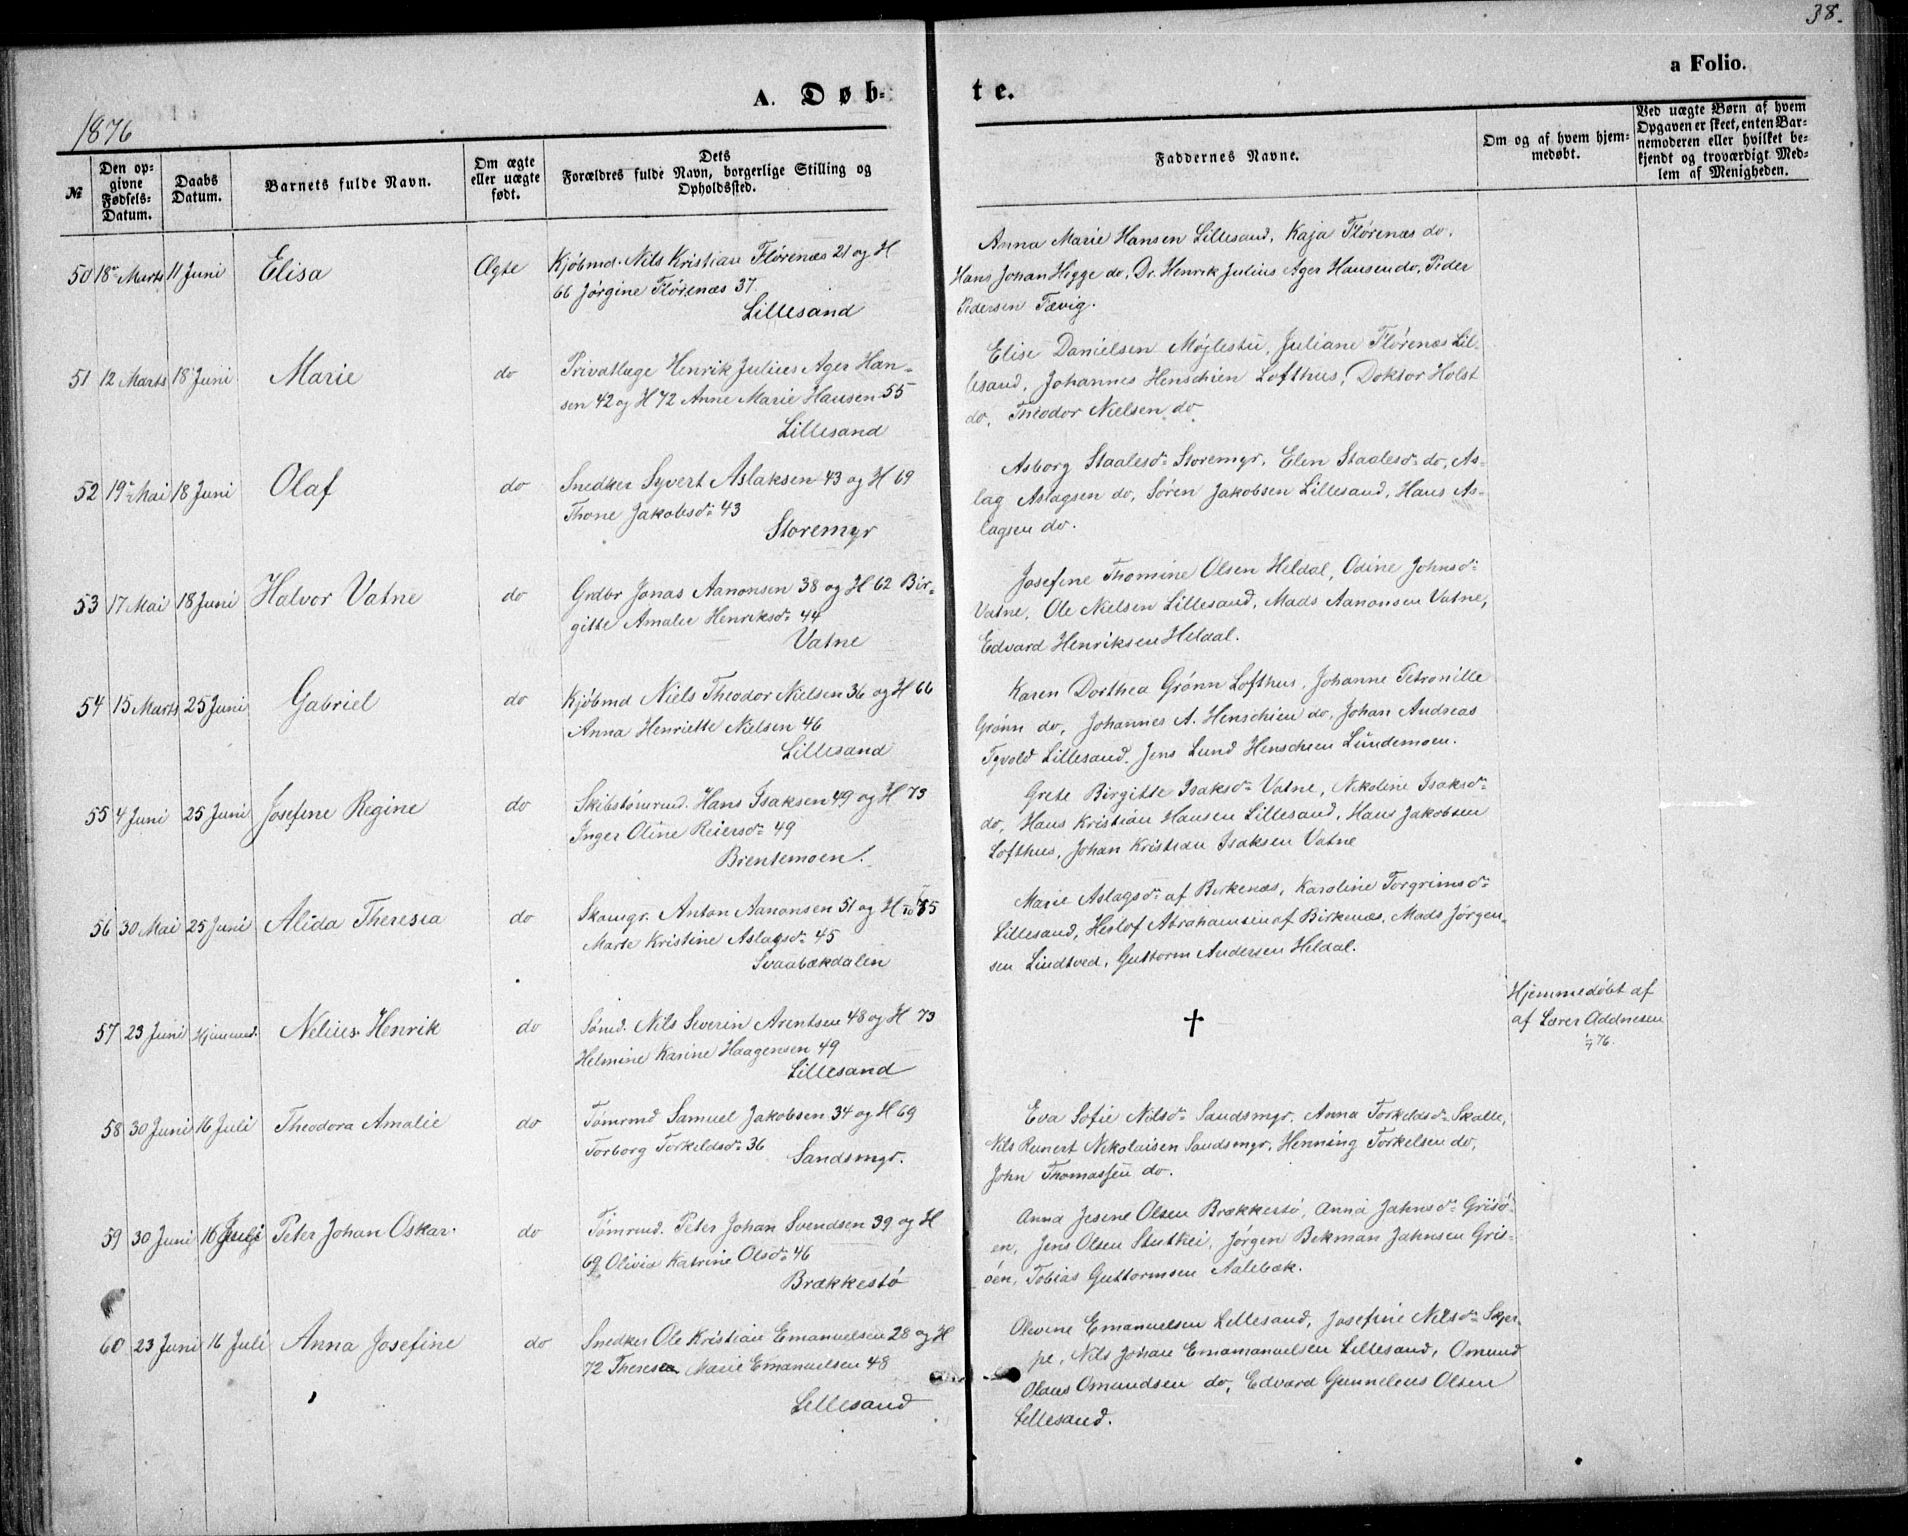 38.
a Folio.
A. Døb-
te.
1876
№
Den op-
givne
Fødsels-
Datum.
Daabs
Datum.
Barnets fulde Navn.
Om ægte
eller uægte
født.
Dets
Forældres fulde Navn, borgerlige Stilling og
Opholdssted.
Faddernes Navne.
Om og af hvem hjem-
medøbt.
Ved uægte Børn af hvem
Opgaven er skeet, enten Bar-
nemoderen eller hvilket be-
kjendt og troværdigt Med-
lem af Menigheden.
50 18de Marts 11 Juni Elisa Ægte
Kjøbmd. Nils Kristian Flørenæs 21 og H
66 Jørgine Flørenæs 37.
Lillesand
Anna Marie Hansen Lillesand, Kaja Flørenæs do.
Hans Johan Higge do, Dr. Henrik Julius Ager Hansen do, Peder
Pedersen Tævig.
51 12 Marts 18 Juni Marie do
Privatlæge Henrik Julius Ager Han-
sen 42 og H 72 Anne Marie Hansen 55
Lillesand
Elise Danielsen Møglestu, Juliane Flørenæs Lil-
lesand, Johannes Henschien Lofthus, Doktor Holst
do, Theodor Nielsen do
52 19de Mai 18 Juni Olaf do
Snedker Syvert Aslaksen 43 og H 69
Thone Jakobsdr 43
Storemyr
Asborg Staalesdr Storemyr, Elen Staalesdr do, As-
lag Aslagsen do, Søren Jakobsen Lillesand, Hans As-
lagsen do.
53 17 Mai 18 Juni Halvor Vatne do
Grdbr Jonas Aanonsen 38 og H 62 Bir-
gitte Amalie Henriksdr 44
Vatne
Josefine Thomine Olsen Heldal, Odine Johnsdr
Vatne, Ole Nielsen Lillesand, Mads Aanonsen Vatne,
Edvard Henriksen Heldal.
54 15 Marts 25 Juni Gabriel do
Kjøbmd Niels Theodor Nielsen 36 og H 66
Anna Henriette Nielsen 46
Lillesand
Karen Dorthea Grønn Lofthus, Johanne Petronille
Grønn do, Johannes A. Henschien do, Johan Andreas
Tyvold Lillesand, Jens Lund Henschien Lundemoen.
55 4 Juni 25 Juni Josefine Regine do
Skibstømmd. Hans Isaksen 49 og H 73
Inger Oline Reiersdr 49
Brentemoen.
Grete Birgitte Isaksdr Vatne, Nikoline Isaksdr
do, Hans Kristian Hansen Lillesand, Hans Jakobsen
Lofthus, Johan Kristian Isaksen Vatne
56 30 Mai 25 Juni Alida Theresia do
Skomgr. Anton Aanonsen 51 og H 75
Marte Kristine Aslagsdr 45
Svaabækdalen
Marie Aslagsdr af Birkenæs, Karoline Torgrimsdr
Lillesand, Herlof Abrahamsen af Birkenæs, Mads Jørgen-
sen Lindtved, Guttorm Andersen Heldal.
57 23 Juni Hjemmed. Nelius Henrik do
Sømd. Nils Severin Arentsen 48 og H 73
Helmine Karine Haagensen 49
Lillesand
†
Hjemmedøbt af
af Lærer Addnesen
1/7 76.
58 30 Juni 16 Juli Theodora Amalie do
Tømrmd Samuel Jakobsen 34 og H 69
Torborg Torkeldsdr 36
Sandsmyr.
Eva Sofie Nilsdr Sandsmyr, Anna Torkeldsdr Skalle,
Nils Reinert Nikolaisen Sandsmyr, Henning Torkelsen do,
John Thomassen do.
59 30 Juni 16 Juli Peter Johan Oskar. do
Tømrmd. Peter Johan Svendsen 39 og H
69 Olivia Katrine Olsdr 46
Brækkestø
Anna Jesine Olsen Brækkestø, Anna Jahnsdr Grisø-
en, Jens Olsen Stutkei, Jørgen Bekman Jahnsen Gris-
øen, Tobias Guttormsen Aalebæk.
60 23 Juni 16 Juli Anna Josefine do
Snedker Ole Kristian Emanuelsen 28 og H
72 Therese Marie Emanuelsen 48
Lillesand
Olevine Emanuelsen Lillesand, Josefine Nilsdr Skjer-
pe, Nils Johan Emamanuelsen Lillesand, Omund
Olaus Omundsen do, Edvard Gunnelius Olsen
Lillesand.